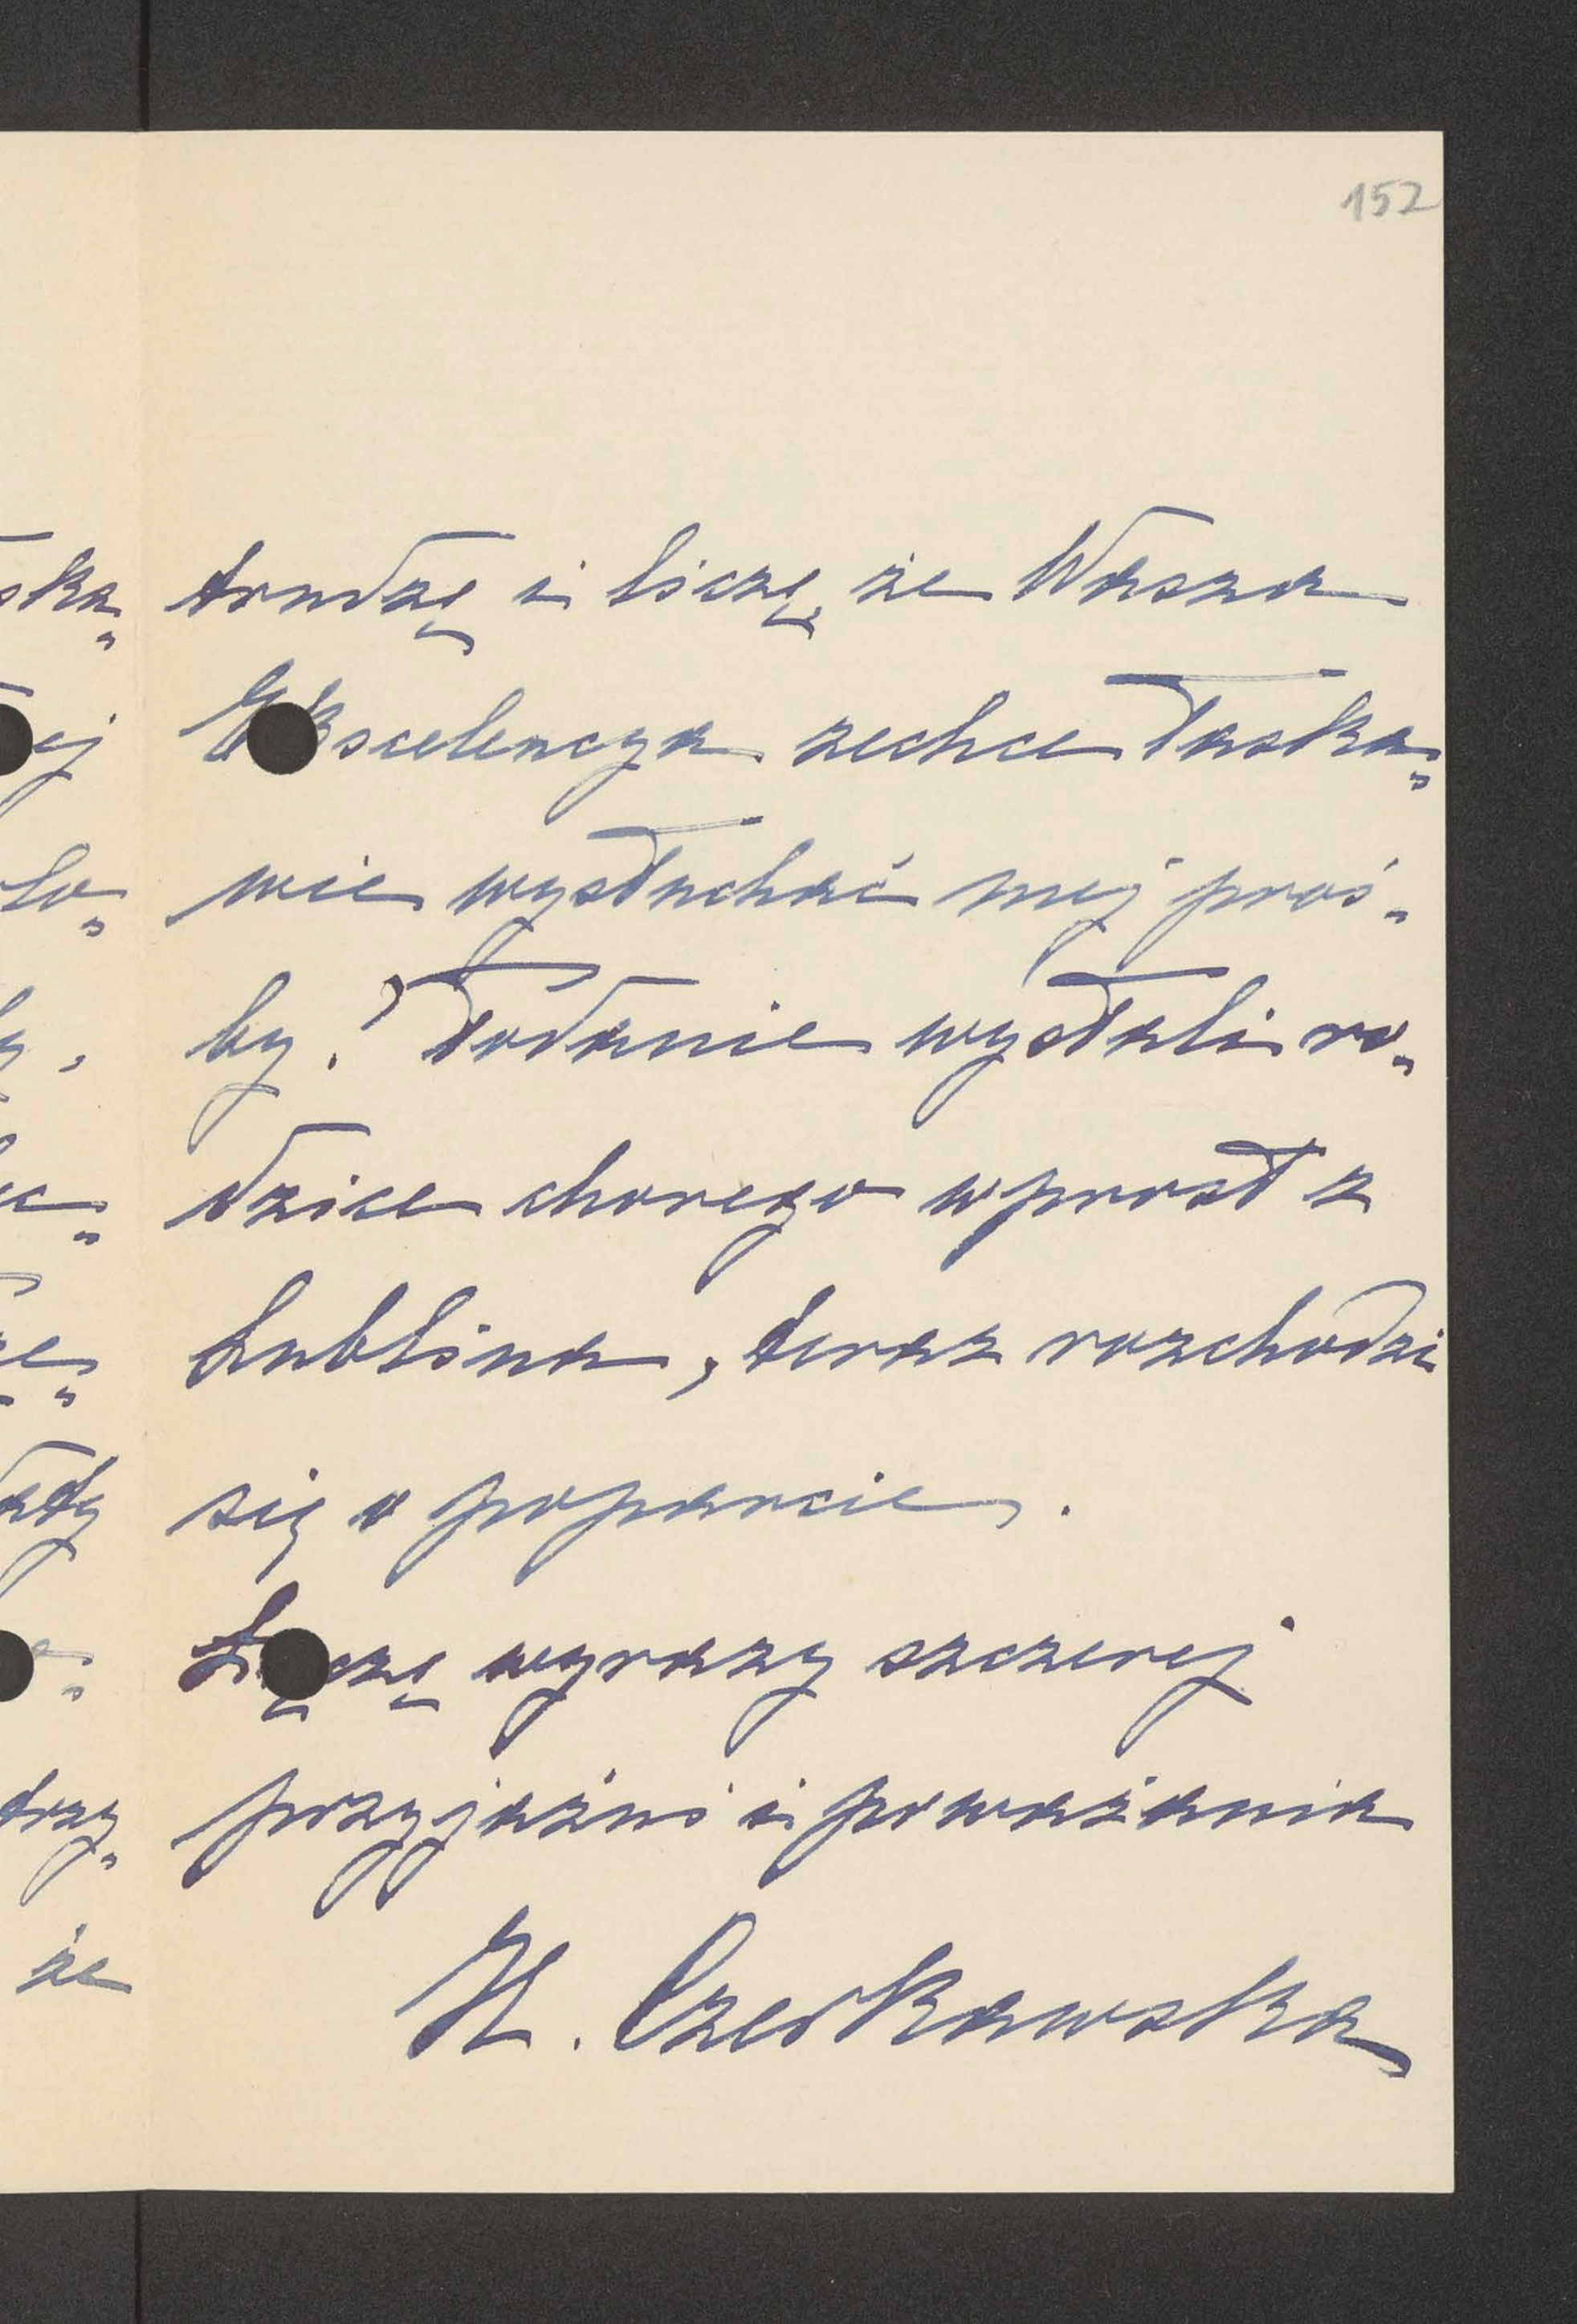 152
trudzę i liczę, że Wasza
Ekscelencya zechce łaska„
wie wysłuchać mej proś„
by? Podanie wysłali ro„
dzice chorego wprost z
Lublina, teraz rozchodzi
się o poparcie.
Łączę wyrazy szczerej
przyjaźni i poważania
H. Czerkawska
ska„
ej
ło„
że